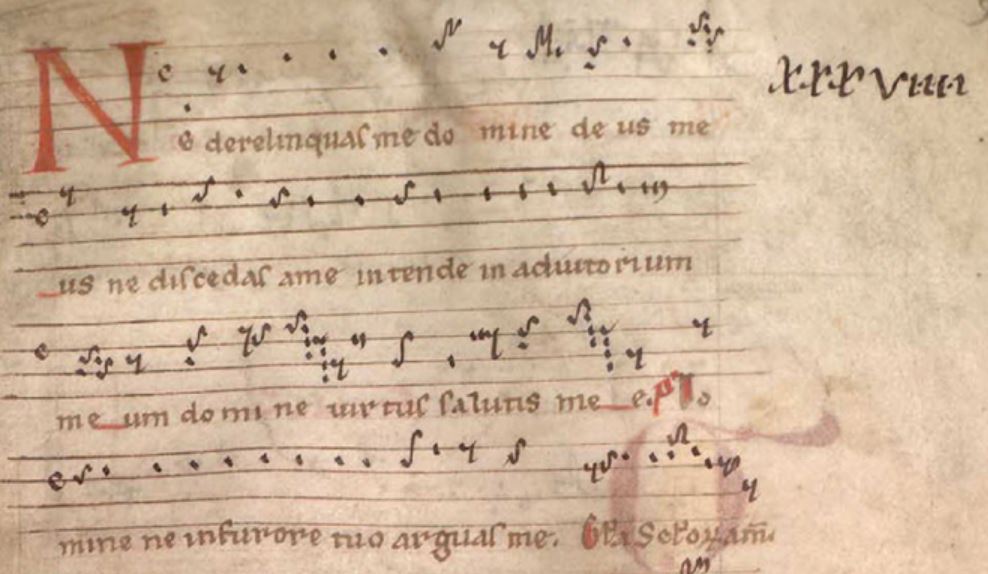 Ne derelinquaſ me do mine de us me
XXXVIIII
us ne diſcedaſ ame intende in adiutorium
me um do mi ne uirtuſ ſalutis me e. pſ Do
mine ne infurore tuo arguaſ me.